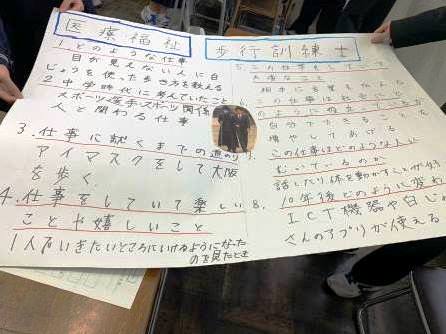 医療福祉
歩行訓練士
1.どのような仕事
目が見えない人に白
じょうを使った歩き方を教える
2.中学時代に考えていたこと
スポーツ選手・スポーツ関係
人と関わる仕事
3.仕事に就くまでの道のり
アイマスクをして大阪
を歩く
4.仕事をしていて楽しい
ことや嬉しいこと
1人で行きたいところにいけるようになった
のを見たとき
5.この仕事をしていて
大変なこと
相手に
この仕事は社会
自分でできることを
増やしてあげる
この仕事はどのような人に
むいているのか
話したり体を動かすことが
8.10年後どのように変わ
ICT機器や白じょ
さんのアプリが使える